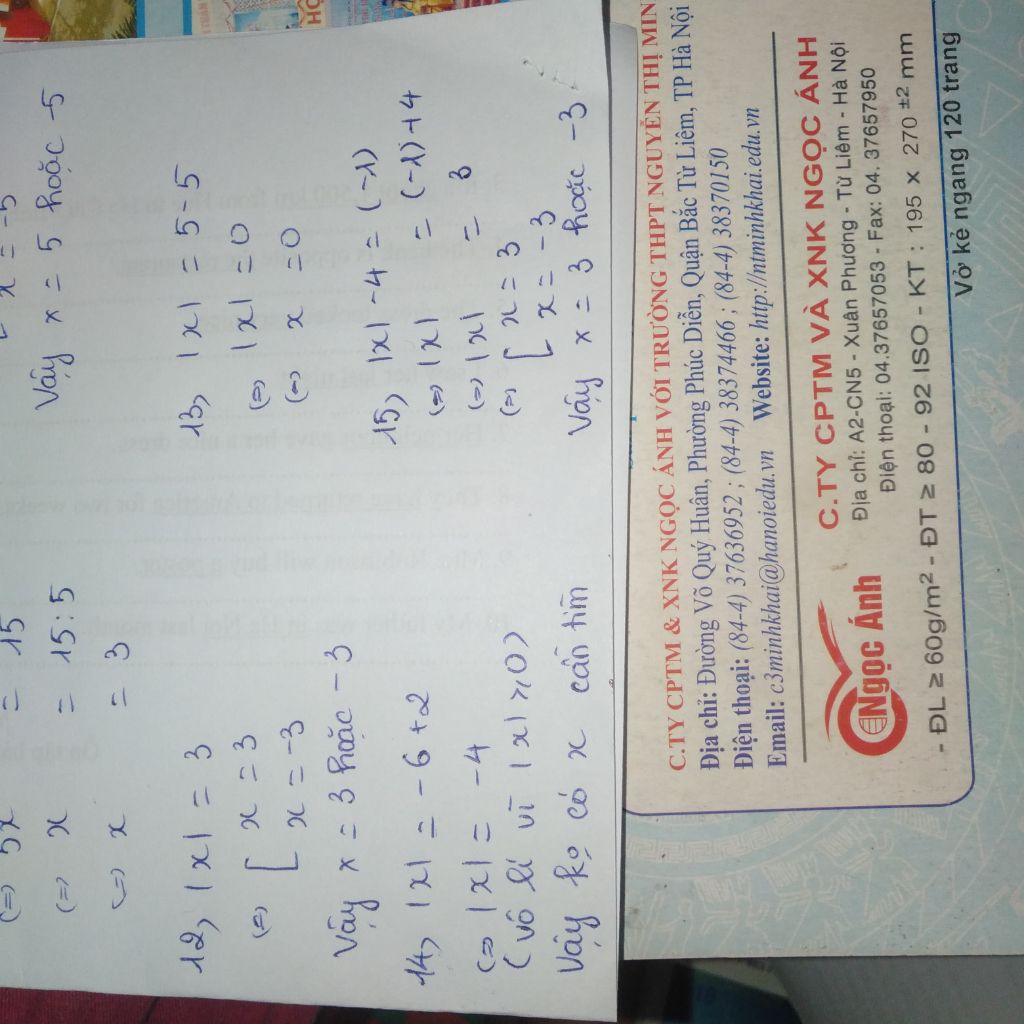 (=) 5x = 15
(=) x = 15:5
(=) x = 3
12, |x| = 3
(=) [ x = 3
x = -3
Vậy x = 3 hoặc -3
14, |x| = -6 + 2
(=) |x| = -4
(vô lí vì |x| ≥ 0)
Vậy ko có x cần tìm
x = -5
Vậy x = 5 hoặc -5
13, |x| = 5 - 5
(=) |x| = 0
(=) x = 0
15, |x| - 4 = (-1)
(=) |x| = (-1) + 4
(=) |x| = 3
(=) [ x = 3
x = -3
Vậy x = 3 hoặc -3
C.TY CPTM & XNK NGỌC ÁNH VỚI TRƯỜNG THPT NGUYỄN THỊ MIN
Địa chỉ: Đường Võ Quý Huân, Phường Phúc Diễn, Quận Bắc Từ Liêm, TP Hà Nội
Điện thoại: (84-4) 37636952 ; (84-4) 38374466 ; (84-4) 38370150
Email: c3minhkhai@hanoiedu.vn Website: http://ntminhkhai.edu.vn
Ngọc Ánh
C.TY CPTM VÀ XNK NGỌC ÁNH
Địa chỉ: A2-CN5 - Xuân Phương - Từ Liêm - Hà Nội
Điện thoại: 04.37657053 - Fax: 04. 37657950
- ĐL ≥ 60g/m² - ĐT ≥ 80 - 92 ISO - KT : 195 x 270 ±2 mm
Vở kẻ ngang 120 trang